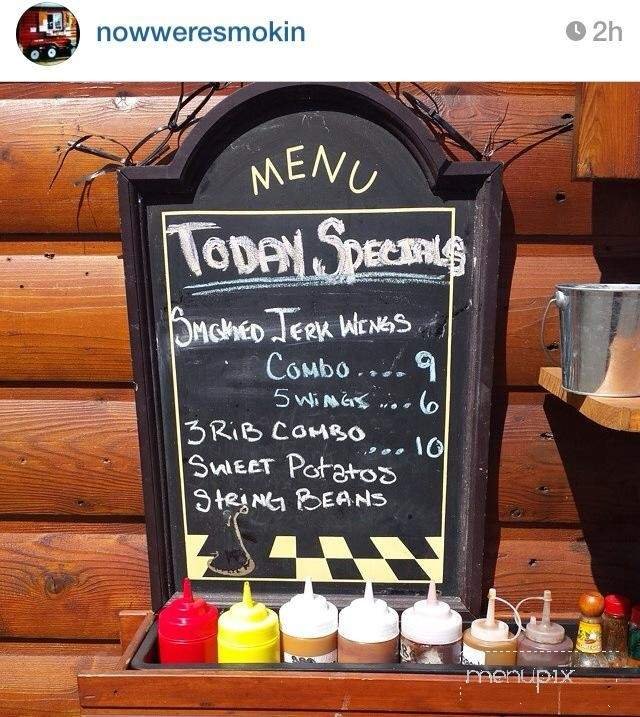 nowweresmokin
2h
MENU
TODAY SPECIALS
SMOKED JERK WINGS
COMBO .... 9
5 WINGS .... 6
3 RIB COMBO
... 10
SWEET Potatos
STRING BEANS
menupix